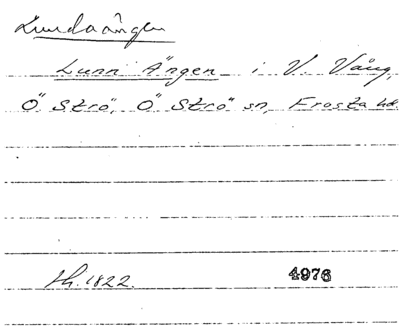 Lundaängen
Lunn Ängen i V. Vång,
Ö Strö, Ö Strö sn, Frosta hd.
sh. 1822. 4976